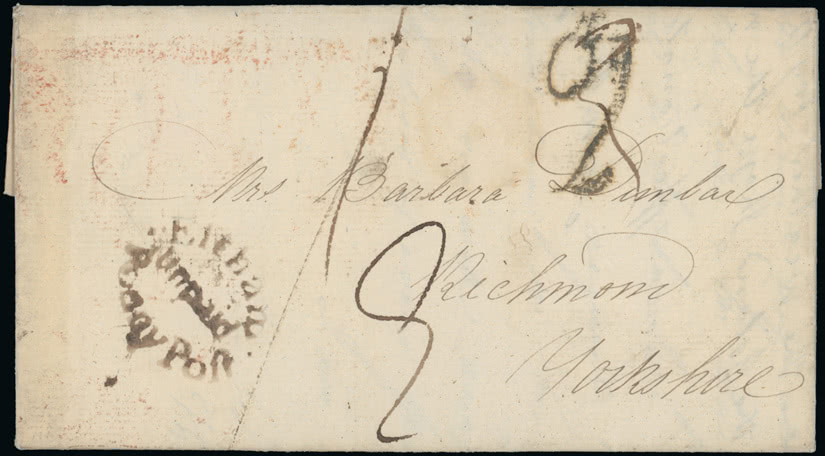 2
8
1
Mrs Barbara Dunbar
Richmond
Yorkshire
3
Unpaid
Penny Post